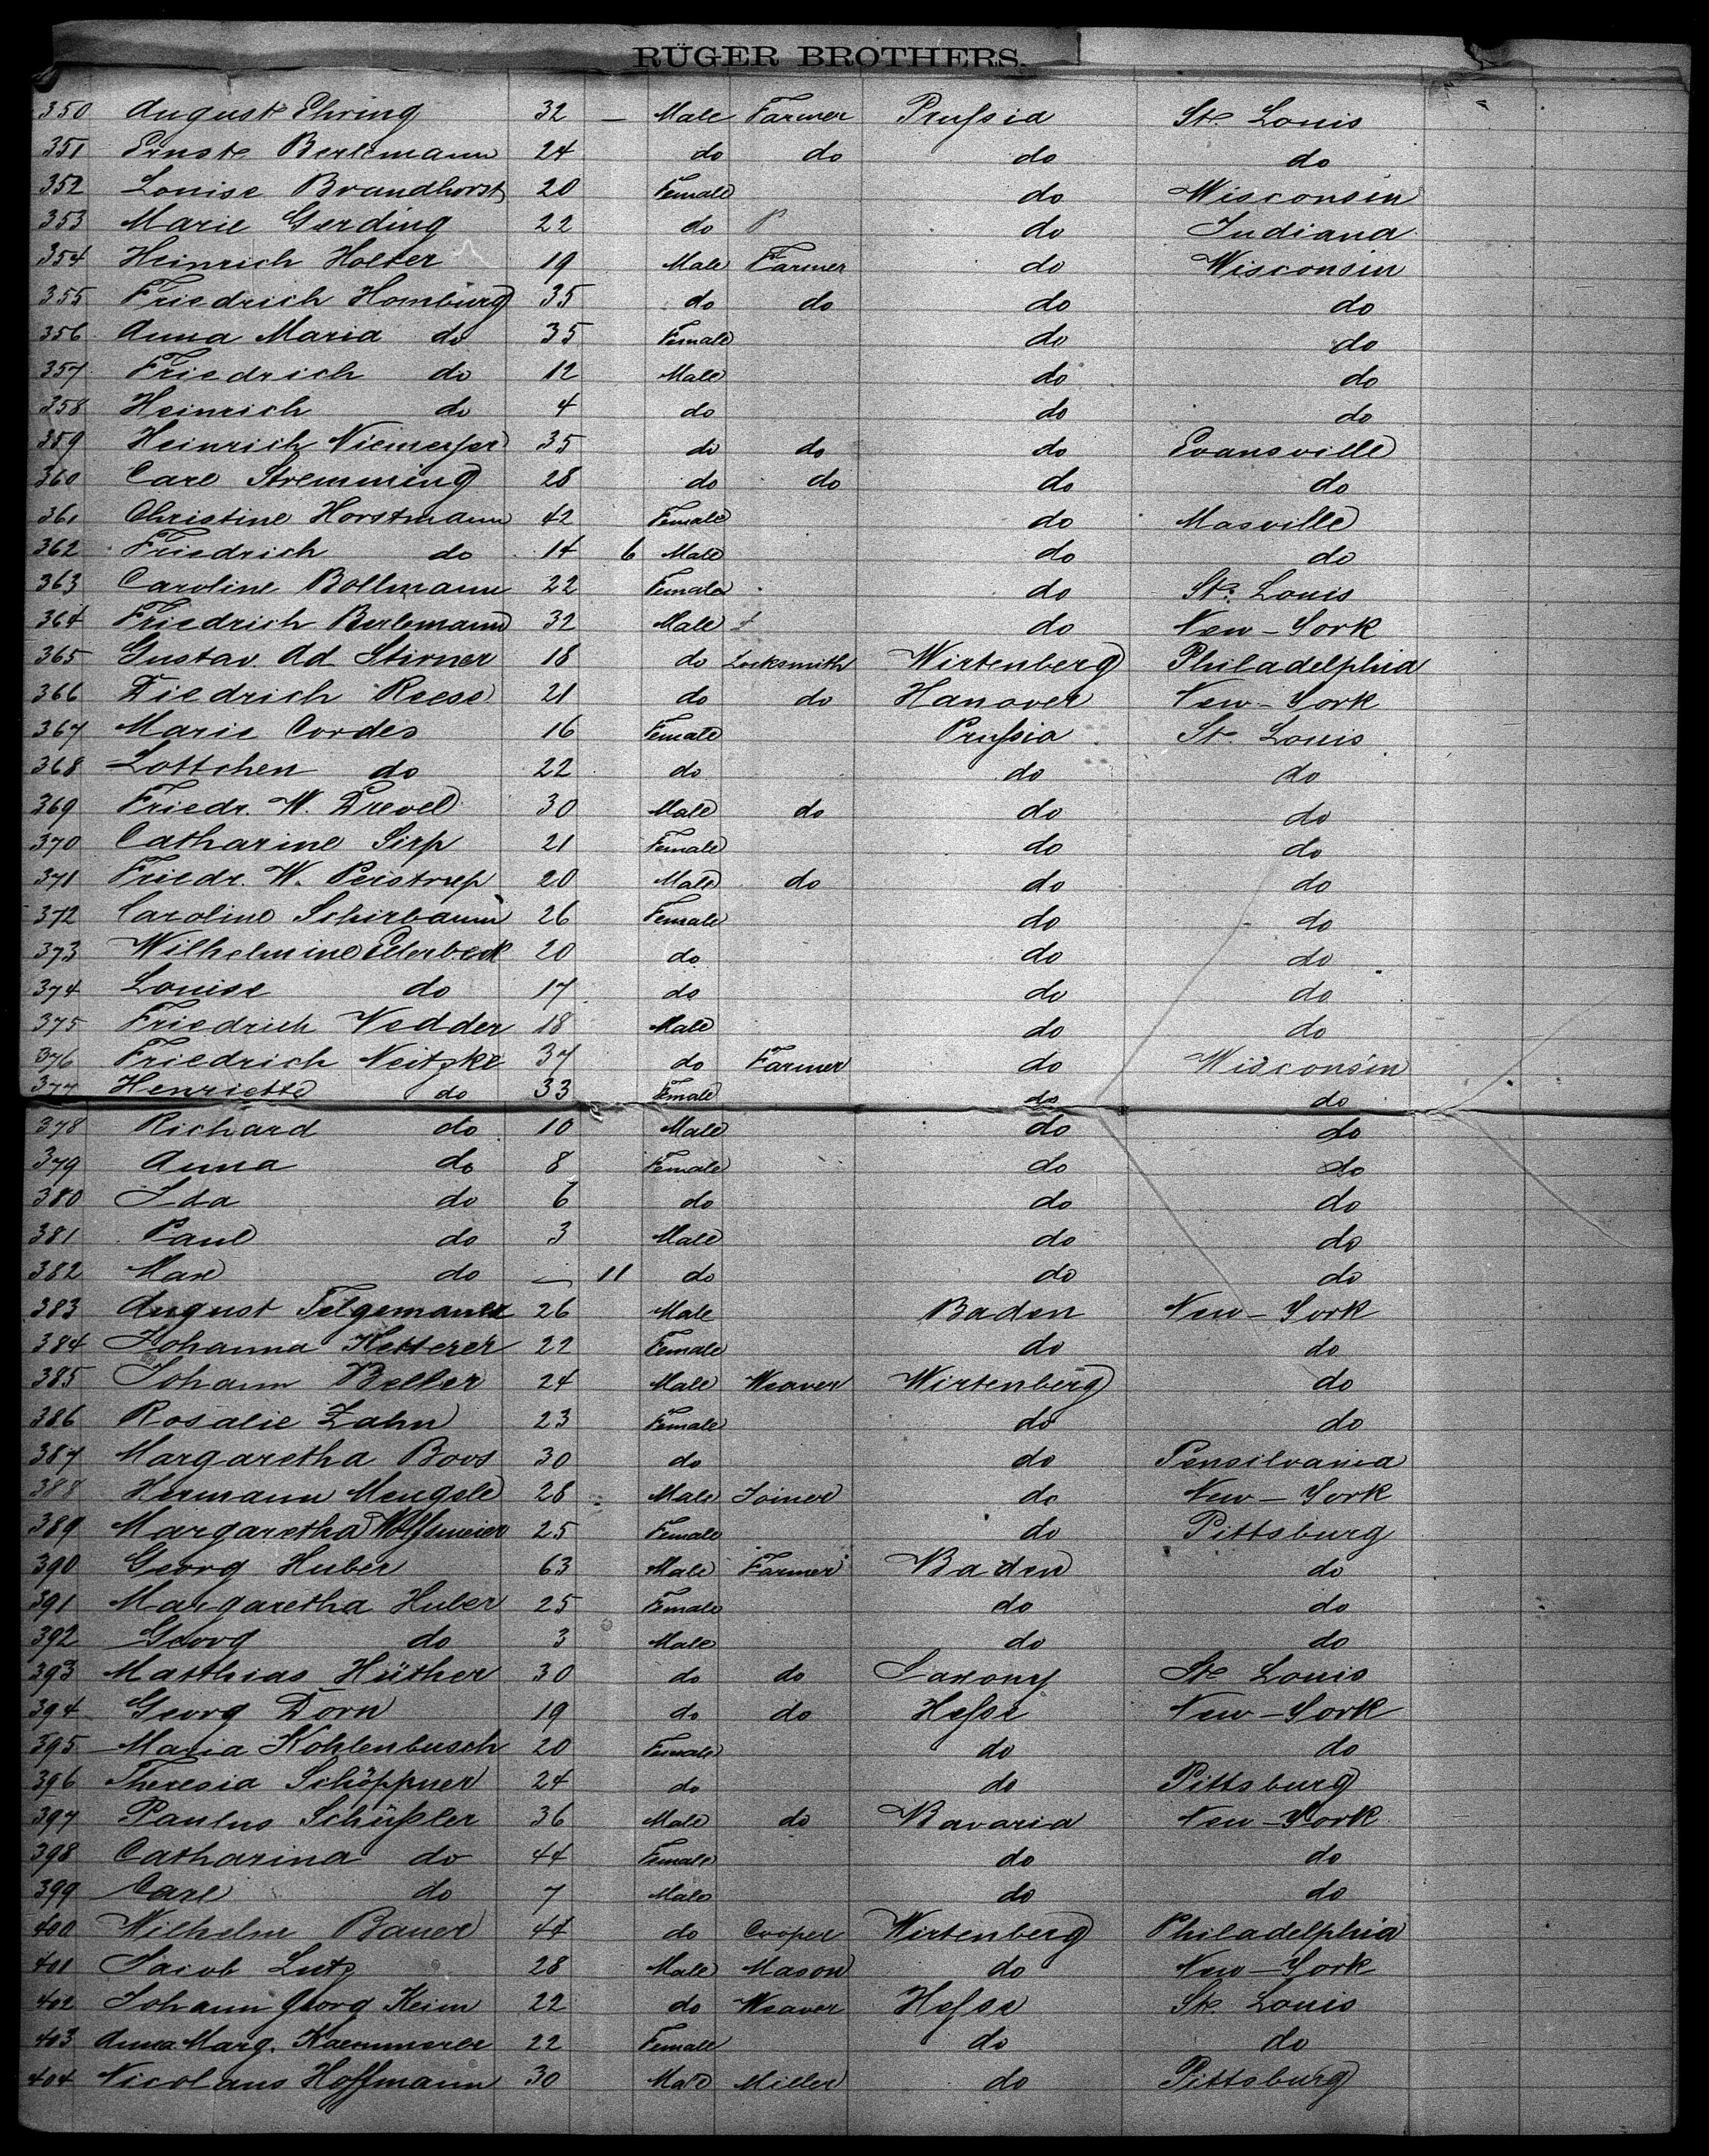 RÜGER BROTHERS.
350 August Ehring 32 — Male Farmer Prußia St. Louis
351 Ernst Berlemann 24 do do do do
352 Louise Brandhorst 20 Female do Wisconsin
353 Marie Gerding 22 do do Indiana
354 Heinrich Holter 19 Male Farmer do Wisconsin
355 Friedrich Homburg 35 do do do do
356 Anna Maria do 35 Female do do
357 Friedrich do 12 Male do do
358 Heinrich do 4 do do do
359 Heinrich Niemeyer 35 do do do Evansville
360 Carl Stremming 28 do do do do
361 Christine Horstmann 42 Female do Masville
362 Friedrich do 14 6 Male do do
363 Caroline Bollmann 22 Female do St. Louis
364 Friedrich Berlemann 32 Male do New-York
365 Gustav Ad Stirner 18 do Locksmith Wirtenberg Philadelphia
366 Diedrich Reese 21 do do Hanover New-York
367 Marie Cordes 16 Female Prußia St. Louis
368 Lottchen do 22 do do do
369 Friedr. W. Drevel 30 Male do do do
370 Catharine Sirp 21 Female do do
371 Friedr. W. Peistrup 20 Male do do do
372 Caroline Schirbaum 26 Female do do
373 Wilhelmine Ellerbeck 20 do do do
374 Louise do 17 do do do
375 Friedrich Vedder 18 Male do do
376 Friedrich Neitzke 37 do Farmer do Wisconsin
377 Henriette do 33 Female do do
378 Richard do 10 Male do do
379 Anna do 8 Female do do
380 Ida do 6 do do do
381 Paul do 3 Male do do
382 Max do — 11 do do do
383 August Telgemann 26 Male Baden New-York
384 Johanna Ketterer 22 Female do do
385 Johann Beller 24 Male Weaver Wirtenberg do
386 Rosalie Zahn 23 Female do do
387 Margaretha Boos 30 do do Pensilvania
388 Hermann Mengele 28 Male Joiner do New-York
389 Margaretha Wolfsmeier 25 Female do Pittsburg
390 Georg Huber 63 Male Farmer Baden do
391 Margaretha Huber 25 Female do do
392 Georg do 3 Male do do
393 Matthias Hüther 30 do do Saxony St. Louis
394 Georg Dorn 19 do do Heße New-York
395 Maria Kohlenbusch 20 Female do do
396 Theresia Schöppner 24 do do Pittsburg
397 Paulus Schüßler 36 Male do Bavaria New-York
398 Catharina do 44 Female do do
399 Carl do 7 Male do do
400 Wilhelm Bauer 44 do Cooper Wirtenberg Philadelphia
401 Jacob Lutz 28 Male Mason do New-York
402 Johann Georg Keim 22 do Weaver Heße St. Louis
403 Anna Marg. Kaemmerer 22 Female do do
404 Nicolaus Hoffmann 30 Male Miller do Pittsburg